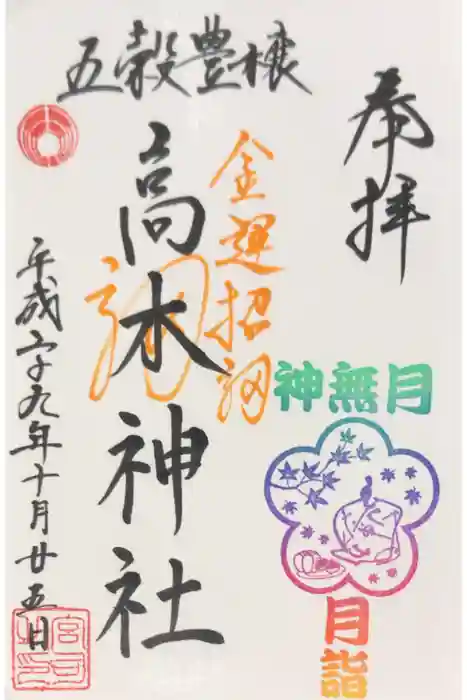 奉拝
五穀豊穣
金運招福
高木神社
平成二十九年十月廿五日
神無月
月詣
宮司